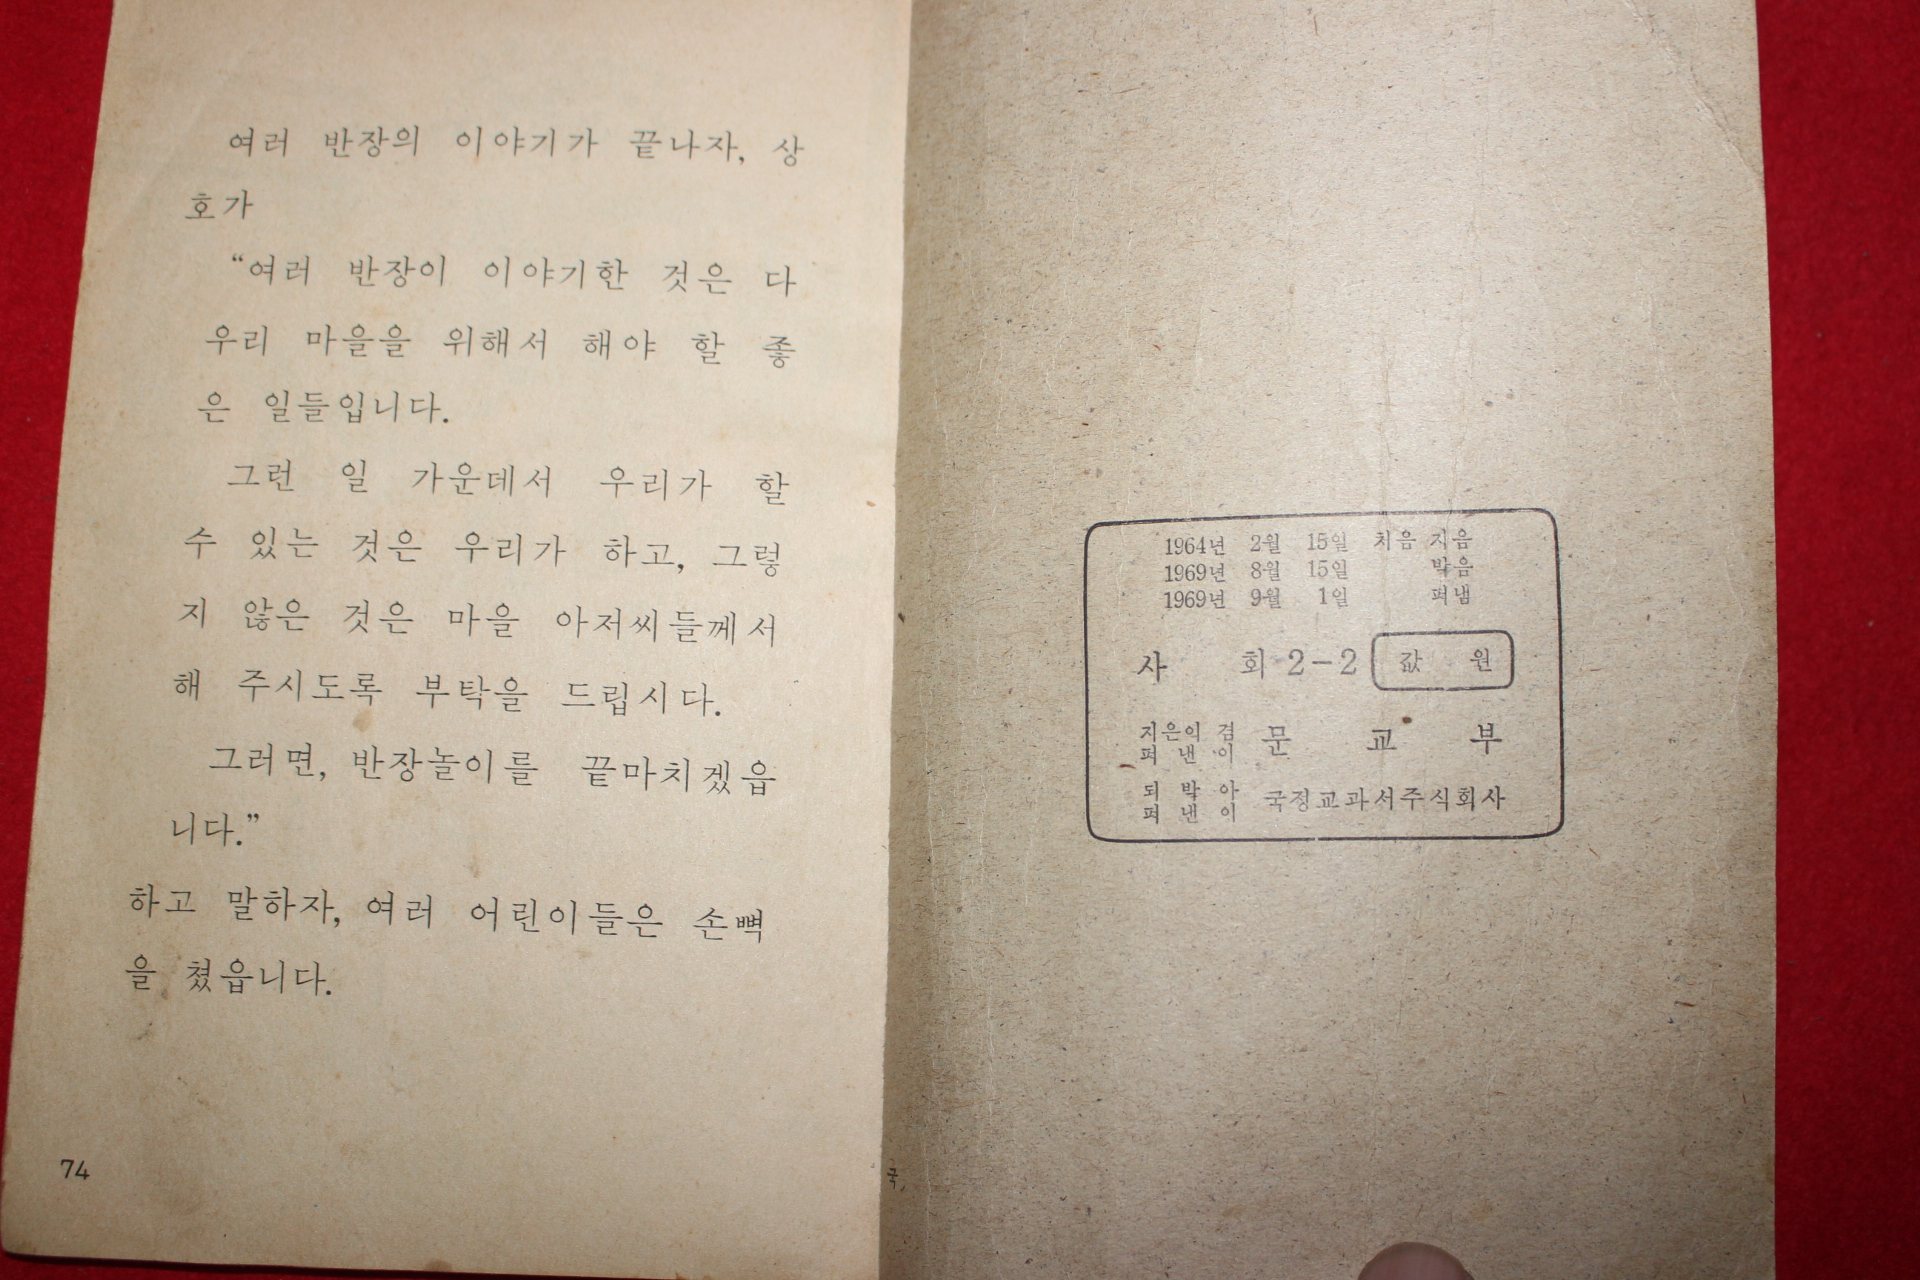 여러 반장의 이야기가 끝나자, 상
호가
“여러 반장이 이야기한 것은 다
우리 마을을 위해서 해야 할 좋
은 일들입니다.
그런 일 가운데서 우리가 할
수 있는 것은 우리가 하고, 그렇
지 않은 것은 마을 아저씨들께서
해 주시도록 부탁을 드립시다.
그러면, 반장놀이를 끝마치겠읍
니다.”
하고 말하자, 여러 어린이들은 손뼉
을 쳤읍니다.
74
1964년 2월 15일 처음 지음
1969년 8월 15일 박음
1969년 9월 1일 펴냄
사 회 2-2 값 원
지은이 겸
펴 낸 이 문 교 부
되 박 아
펴 낸 이 국정교과서주식회사
국